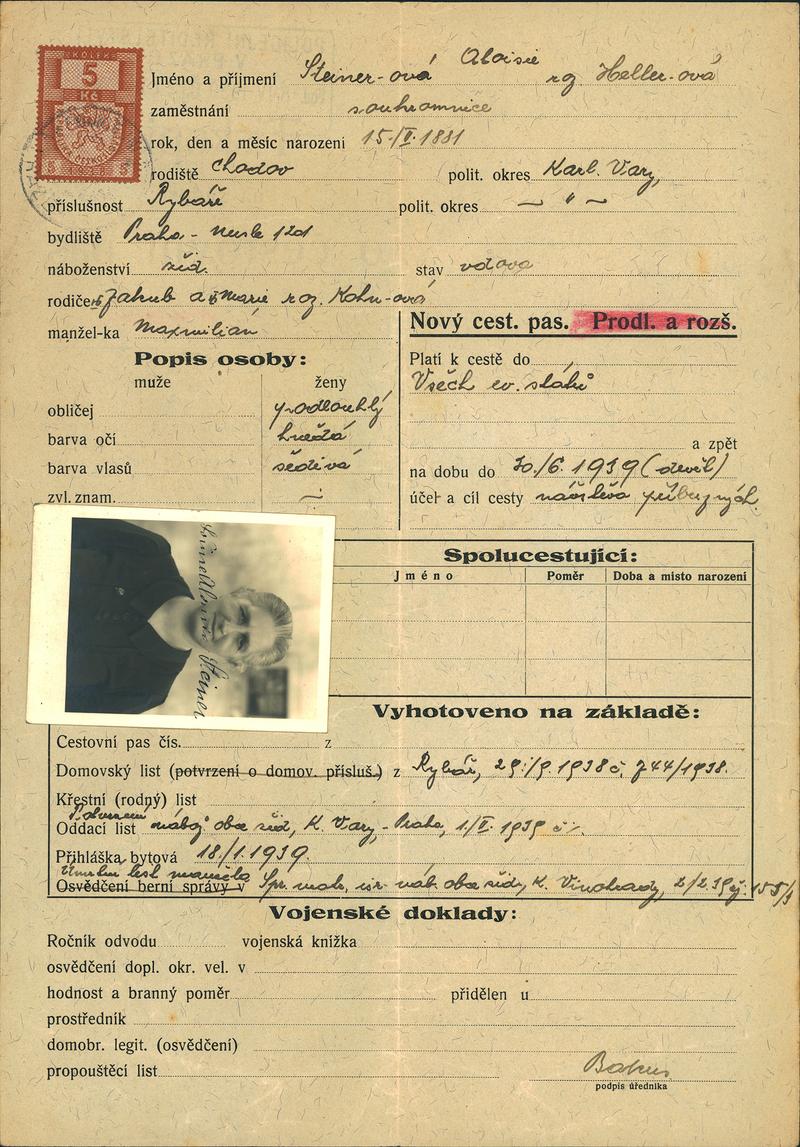 KOLEK
5
Kč
Jméno a příjmení Steiner-ová Aloisie roz. Heller-ová
zaměstnání soukromnice
rok, den a měsíc narození 15./II. 1881
rodiště Chodov polit. okres Karl. Vary,
příslušnost Rybáře polit. okres — " —
bydliště Praha - Nusle 1201
náboženství žid. stav vdova
rodiče Jakub a Marie roz. Kohn-ová
manžel-ka Maxmilián
Nový cest. pas. Prodl. a rozš.
Popis osoby:
muže ženy
obličej podlouhlý
barva očí hnědá
barva vlasů šedivá
zvl. znam. —
Platí k cestě do
Všech ev. států
a zpět
na dobu do 30./6. 1939 (devět)
účel a cíl cesty návštěva příbuzných
Steiner
Spolucestující:
Jméno Poměr Doba a místo narození
Vyhotoveno na základě:
Cestovní pas čís. z
Domovský list (potvrzení o domov. přísluš.) z Rybář, 29./9. 1938 č. 744/1938.
Křestní (rodný) list
Potvrzení
Oddací list nábož. obce žid, K. Vary - Praha, 1/II. 1939
Přihláška bytová 18./1. 1939.
Úmrtní list manžela
Osvědčení berní správy v Spr. mat. isr. náb. obce židů, K. Vinohrady, 2/2. 39
Vojenské doklady:
Ročník odvodu vojenská knížka
osvědčení dopl. okr. vel. v
hodnost a branný poměr přidělen u
prostředník
domobr. legit. (osvědčení)
propouštěcí list
podpis úředníka